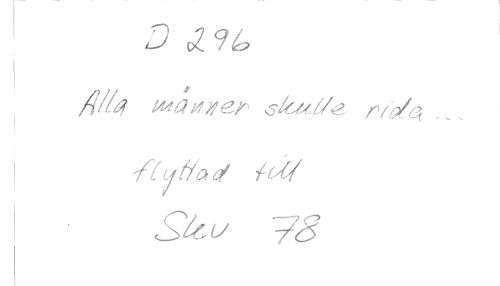 D 296
Alla männer skulle rida...
flyttad till
Skv 78